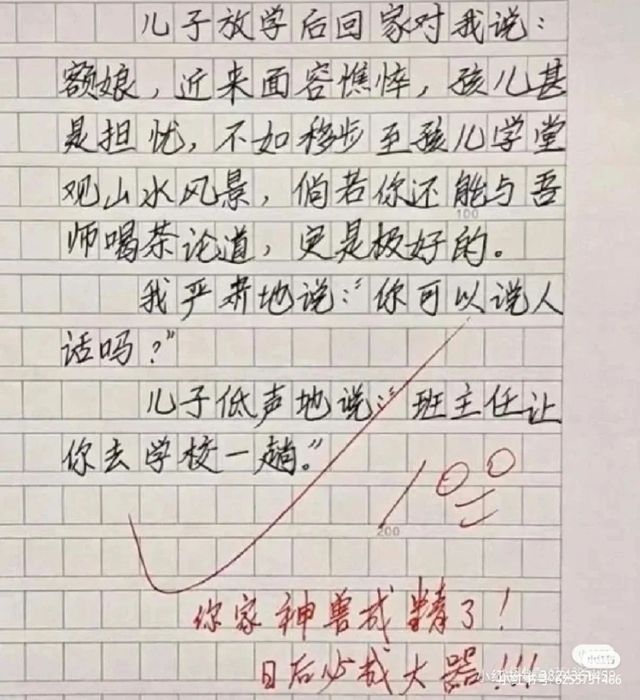 儿子放学后回家对我说：
额娘，近来面容憔悴，孩儿甚
是担忧，不如移步至孩儿学堂
观山水风景，倘若你还能与吾
100
师喝茶论道，定是极好的。
我严肃地说：“你可以说人
话吗？”
儿子低声地说：“班主任让
你去学校一趟。”
100
200
你家神兽成精了！
日后必成大器!!!